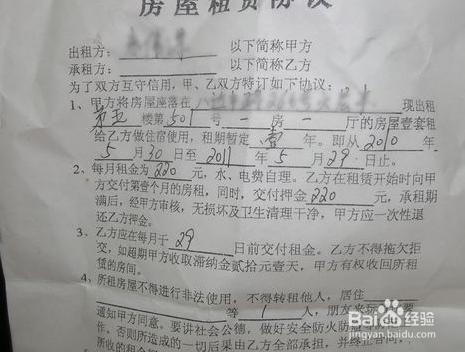 房屋租赁协议
出租方： 以下简称甲方
承租方： 以下简称乙方
为了双方互守信用，甲、乙双方特订如下协议：
1、甲方将房屋座落在 现出租
第五 楼第 501 号 一 房 一 厅的房屋壹套租
给乙方做住宿使用，租期暂定 壹 年。即从 2010 年
5 月 30 日至 2011 年 5 月 29 日止。
2、每月租金为 220 元，水、电费自理。乙方在租赁开始时向甲
方交付第壹个月的房租，同时，交付押金 220 元，承租期
满后，经甲方审核，无损坏及卫生清理干净，甲方应一次性退
还乙方押金。
3、乙方应在每月于 29 日前交付租金。乙方不得拖欠拒
交，如超期甲方收取滞纳金贰拾元壹天，甲方有权收回所租
赁的房间。
4、所租房屋不得进行非法使用，不得转租他人，居住
等 1 人，朋友
通知甲方同意。要讲社会公德，做好安全防火防盗
作。否则所造成的一切后果由乙方全部承担，并终止合同，
所收的租金
Baidu经验
jingyan.baidu.com